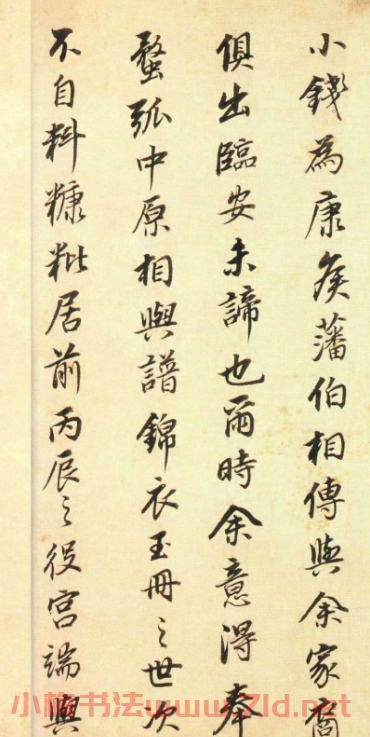 小錢為康侯藩伯相傳與余家裔
俱出臨安未諦也爾時余意得奉
蝥弧中原相與譜錦衣玉冊之世次
不自料糠粃居前丙辰之役宮端與
小楷书法www.27ld.net